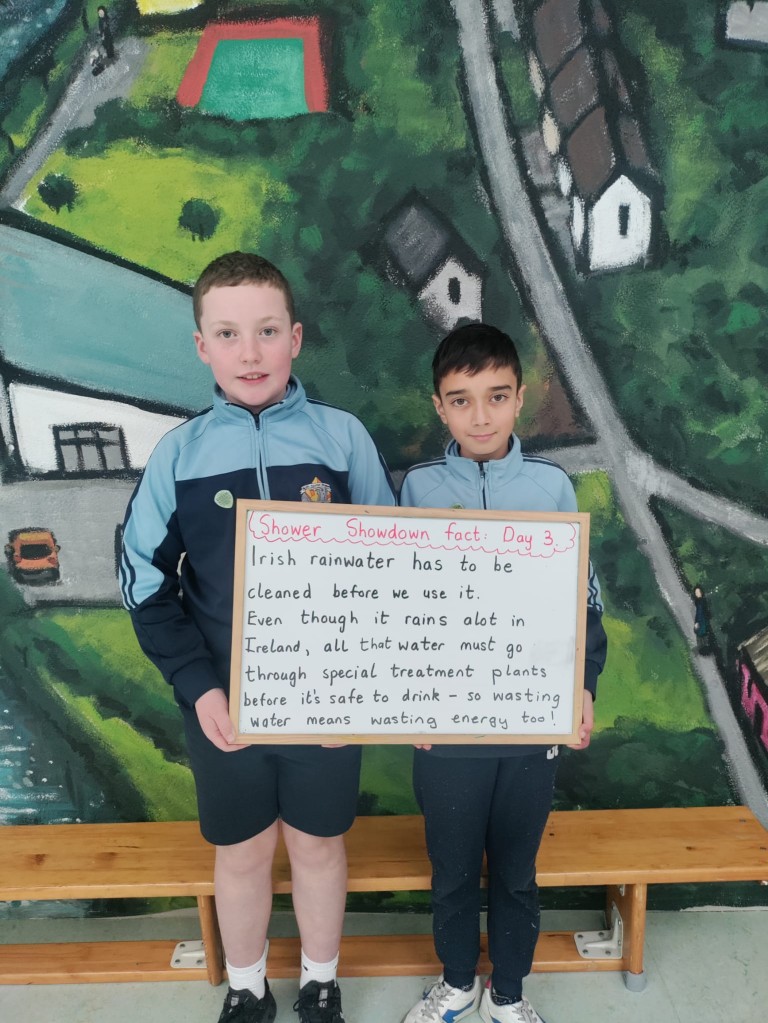 Shower Showdown fact: Day 3.
Irish rainwater has to be
cleaned before we use it.
Even though it rains alot in
Ireland, all that water must go
through special treatment plants
before it's safe to drink - so wasting
water means wasting energy too!